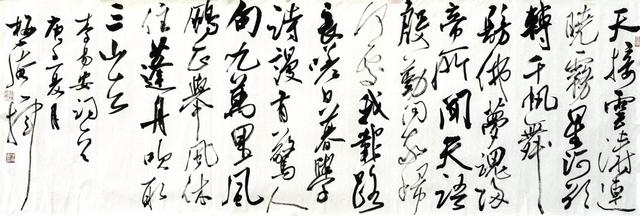 天接雲濤連
曉霧星河欲
轉千帆舞
髣佛夢魂歸
帝所聞天語
殷勤問我歸
何處我報路
長嗟日暮學
詩謾有驚人
句九萬里風
鵬正舉風休
住蓬舟吹取
三山去
李易安詞
夏月